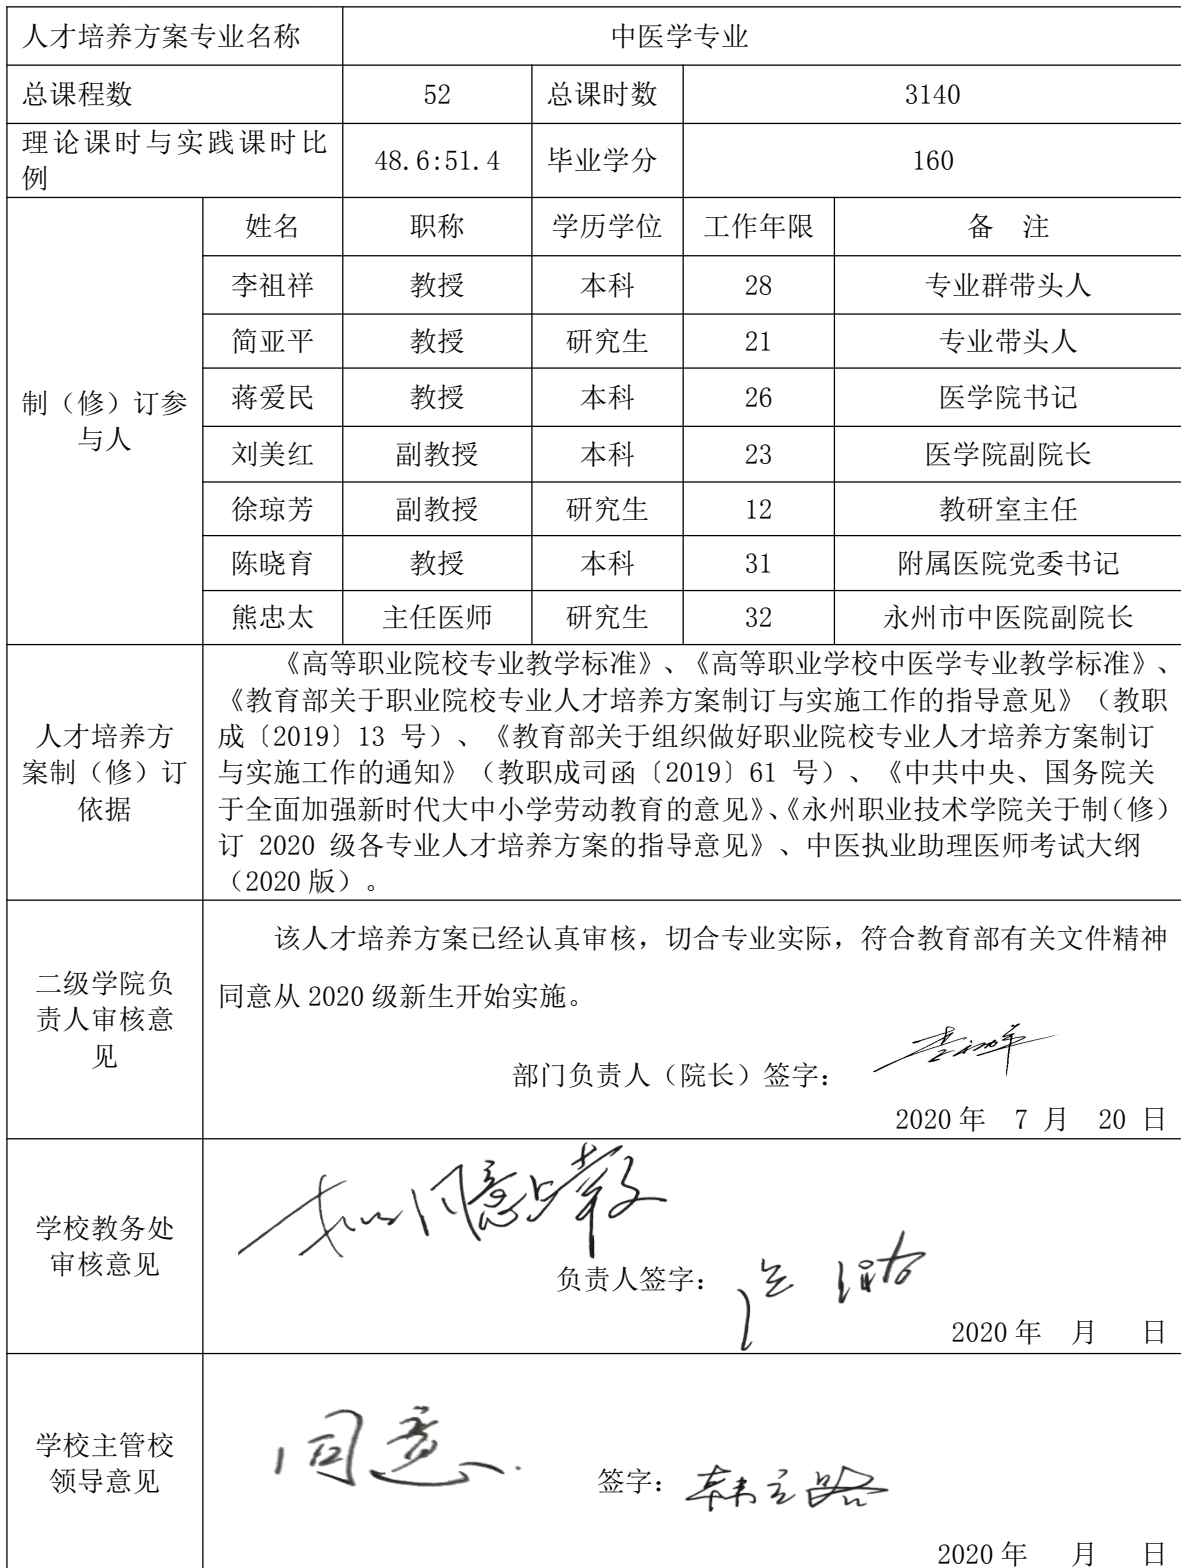 人才培养方案专业名称 中医学专业
总课程数 52 总课时数 3140
理论课时与实践课时比
例 48.6:51.4 毕业学分 160
制（修）订参
与人
姓名 职称 学历学位 工作年限 备 注
李祖祥 教授 本科 28 专业群带头人
简亚平 教授 研究生 21 专业带头人
蒋爱民 教授 本科 26 医学院书记
刘美红 副教授 本科 23 医学院副院长
徐琼芳 副教授 研究生 12 教研室主任
陈晓育 教授 本科 31 附属医院党委书记
熊忠太 主任医师 研究生 32 永州市中医院副院长
人才培养方
案制（修）订
依据
《高等职业院校专业教学标准》、《高等职业学校中医学专业教学标准》、
《教育部关于职业院校专业人才培养方案制订与实施工作的指导意见》（教职
成〔2019〕13 号）、《教育部关于组织做好职业院校专业人才培养方案制订
与实施工作的通知》（教职成司函〔2019〕61 号）、《中共中央、国务院关
于全面加强新时代大中小学劳动教育的意见》、《永州职业技术学院关于制（修）
订 2020 级各专业人才培养方案的指导意见》、中医执业助理医师考试大纲
（2020 版）。
二级学院负
责人审核意
见
该人才培养方案已经认真审核，切合专业实际，符合教育部有关文件精神
同意从 2020 级新生开始实施。
部门负责人（院长）签字：
2020 年 7 月 20 日
学校教务处
审核意见
同意
负责人签字：
2020 年 月 日
学校主管校
领导意见
同意.
签字：
2020 年 月 日